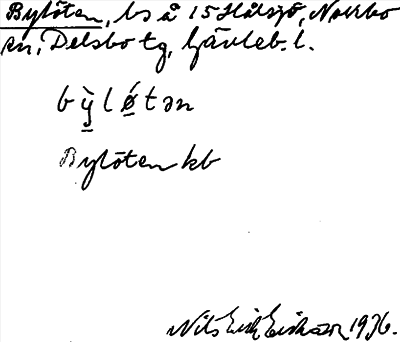 Bylöten, bs å 15 Hålsjö, Norrbo
sn, Delsbo tg, Gävleb. l.
bỳ̱lǿ̱tən
Bylöten kb
Nils Erik Eriksson 1936.